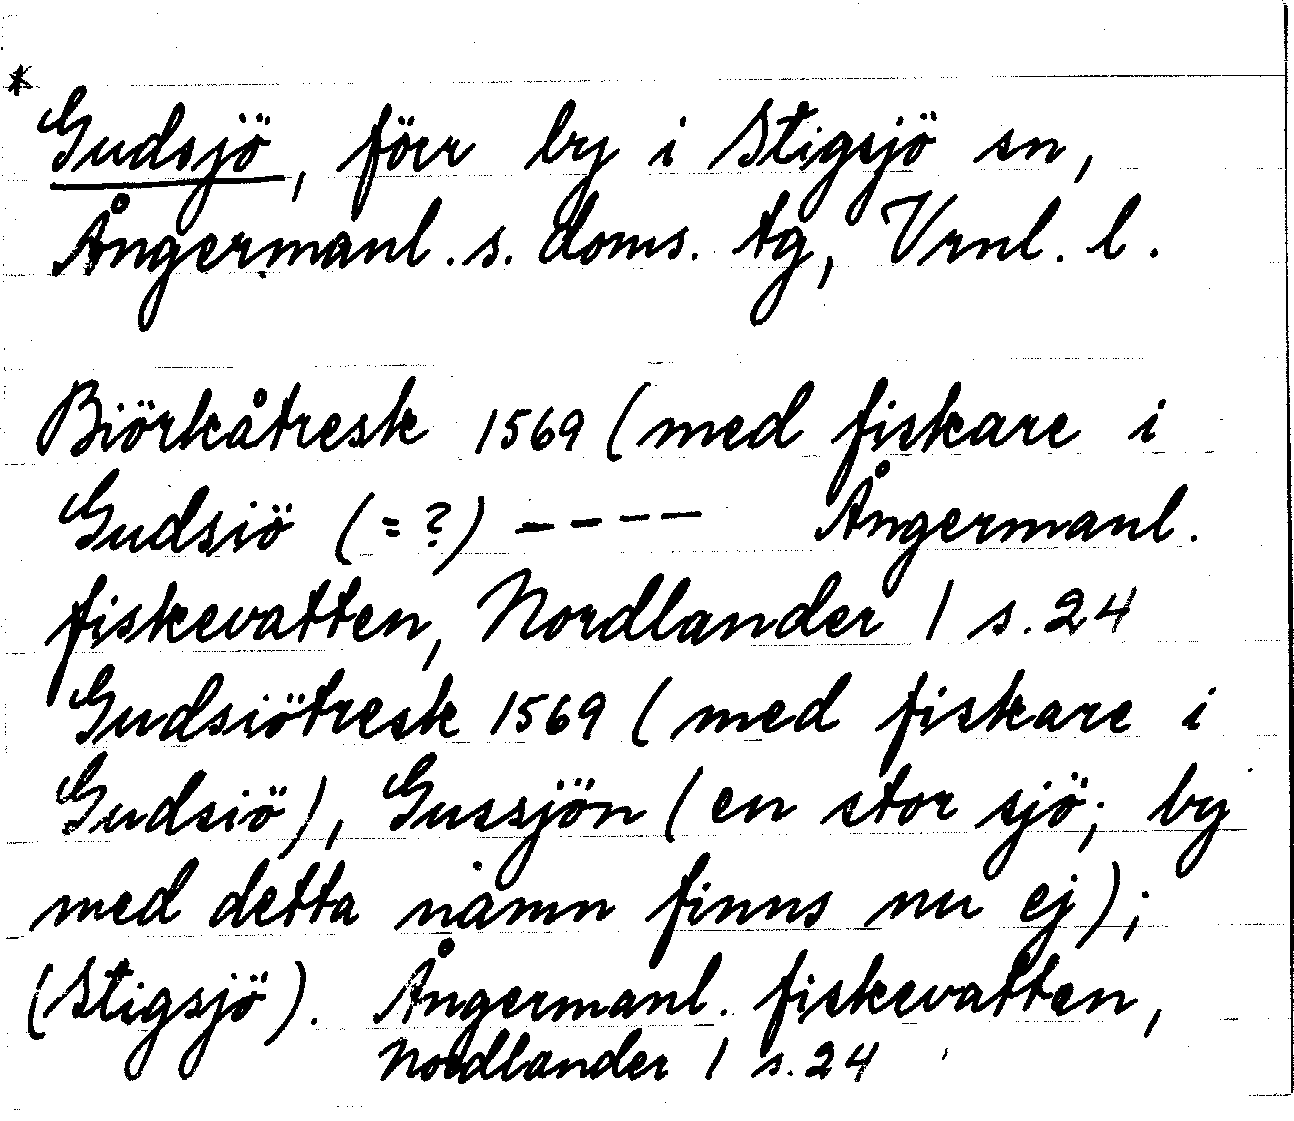 *
Gudsjö, förr by i Stigsjö sn,
Ångermanl. s. doms. tg, Vrnl. l.
Biörkåtresk 1569 (med fiskare i
Gudsiö (=?) ---- Ångermanl.
fiskevatten, Nordlander 1 s. 24
Gudsiötresk 1569 (med fiskare i
Gudsiö), Gussjön (en stor sjö; by
med detta namn finns nu ej);
(Stigsjö). Ångermanl. fiskevatten,
Nordlander 1 s. 24